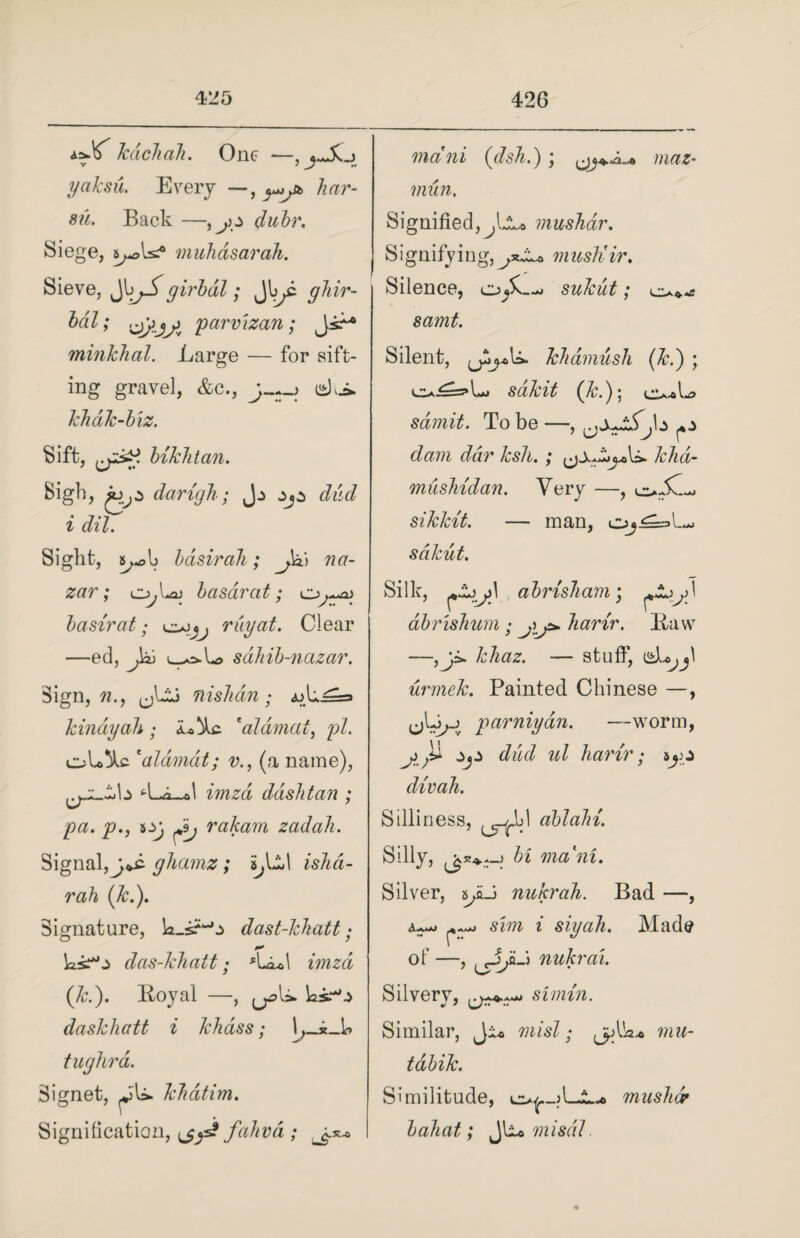 425
426
کاچه kâchah. One —, یکسو
yaksú. Every —, هرسو har-
sú. Back —, دبر dubr.
Siege, محاصره muhásarah.
Sieve, گربال girbál ; غربال ghir-
bál ; پرویزن parvízan ; منخل
minkhal. Large — for sift-
ing gravel, &c., خاک بیز
khák-bíz.
Sift, بیختن bíkhtan.
Sigh, دریغ darígh ; دود دل dúd
i dil.
Sight, باصره básirah ; نظر na-
zar ; بصارت basárat ; بصیرت
basírat ; رویت rúyat. Clear
—ed, صاحب نظر sáhib-nazar.
Sign, n., نشان nishán ; کنایه
kináyah ; علامة 'alámat, pl.
علامات 'alámát ; v., (a name),
امضاء داشتن imzá dáshtan ;
pa. p., رقم زده rakam zadah.
Signal, غمز ghamz ; اشارة ishá-
rah (k.).
Signature, دستخط dast-khatt ;
دسخط das-khatt ; امضاء imzá
(k.). Royal —, دسخط خاص
daskhatt i kháss ; طغرا
tughrá.
Signet, خاتم khátim.
Signification, فحوی fahvá ; معنی
ma'ni (dsh.) ; مضمون maz-
mún.
Signified, مشار mushár.
Signifying, مشعر mush'ir.
Silence, سکوت sukút ; صمت
samt.
Silent, خاموش khámúsh (k.) ;
ساکت sákit (k.) ; صامت
sámit. To be —, دم درکشیدن
dam dár ksh. ; خاموشیدن khá-
múshídan. Very —, سکیت
sikkít. — man, ساکوت
sákút.
Silk, ابریشم abrísham ; آبریشم
ábríshum ; حریر harír. Raw
—, خز khaz. — stuff, اورمک
úrmek. Painted Chinese —,
پرنیان parniyán. —worm,
دود الحریر dúd ul harír ; دیوه
dívah.
Silliness, ابلهی ablahí.
Silly, بیمعنی bí ma'ní.
Silver, نقره nukrah. Bad —,
سیم سیه sím i siyah. Made
of —, نقرئی nukraí.
Silvery, سیمین símín.
Similar, مثل misl ; مطابق mu-
tábik.
Similitude, مشابهت mushá-
bahat ; مثال misál.